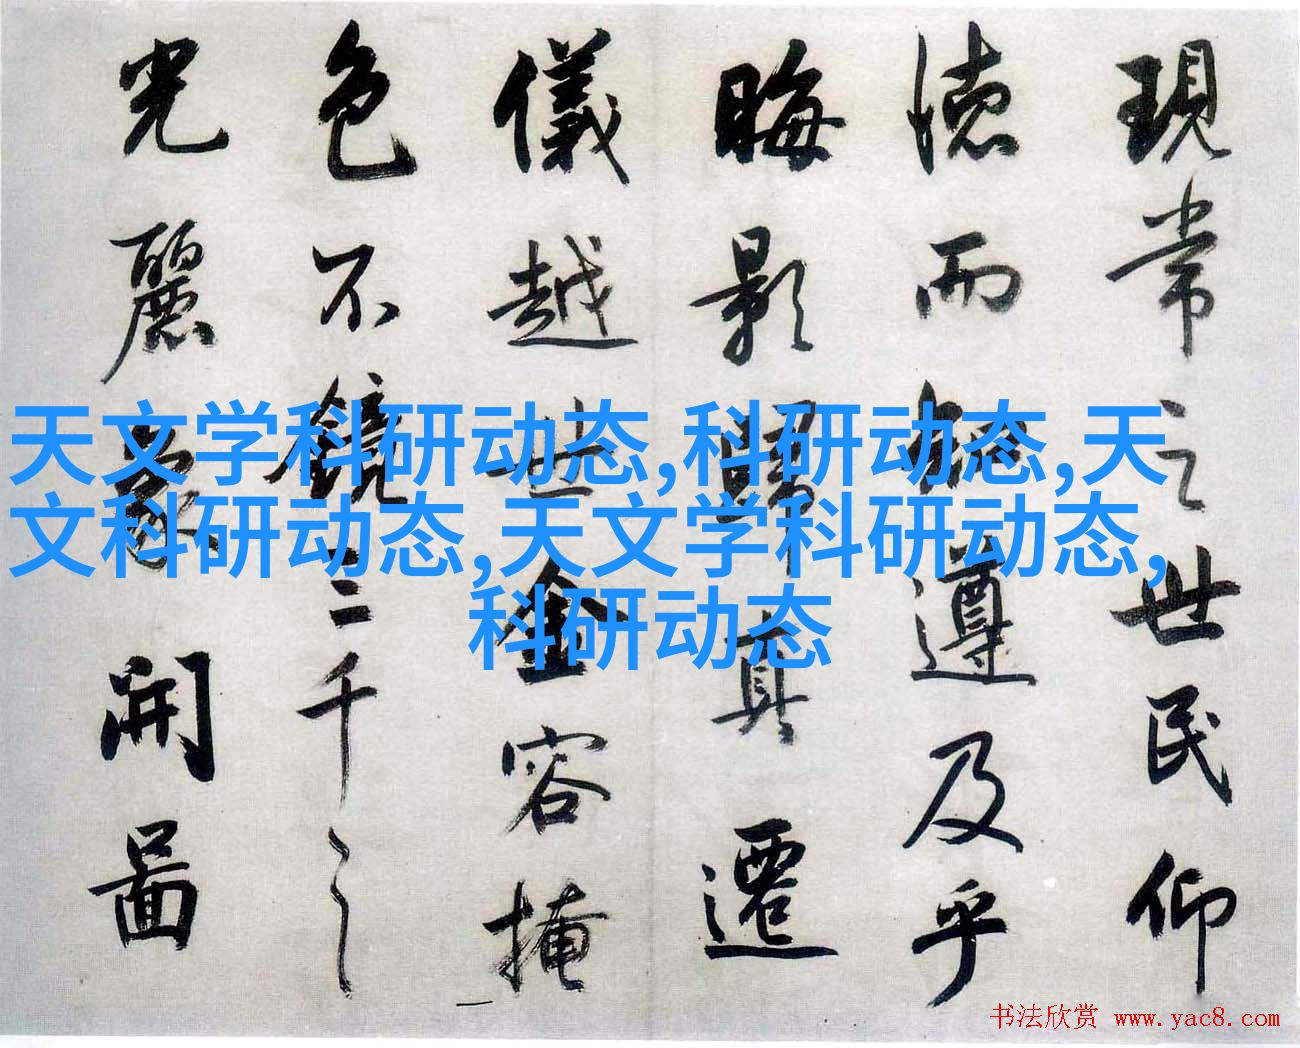 現常之世民仰
德而知遵及乎
晦影歸真遷
儀越世金容掩
色不鏡三千之
光麗象開圖
天文学科研动态,科研动态,天
文科研动态,天文学科研动态,
科研动态
书法欣赏 www.yac8.com